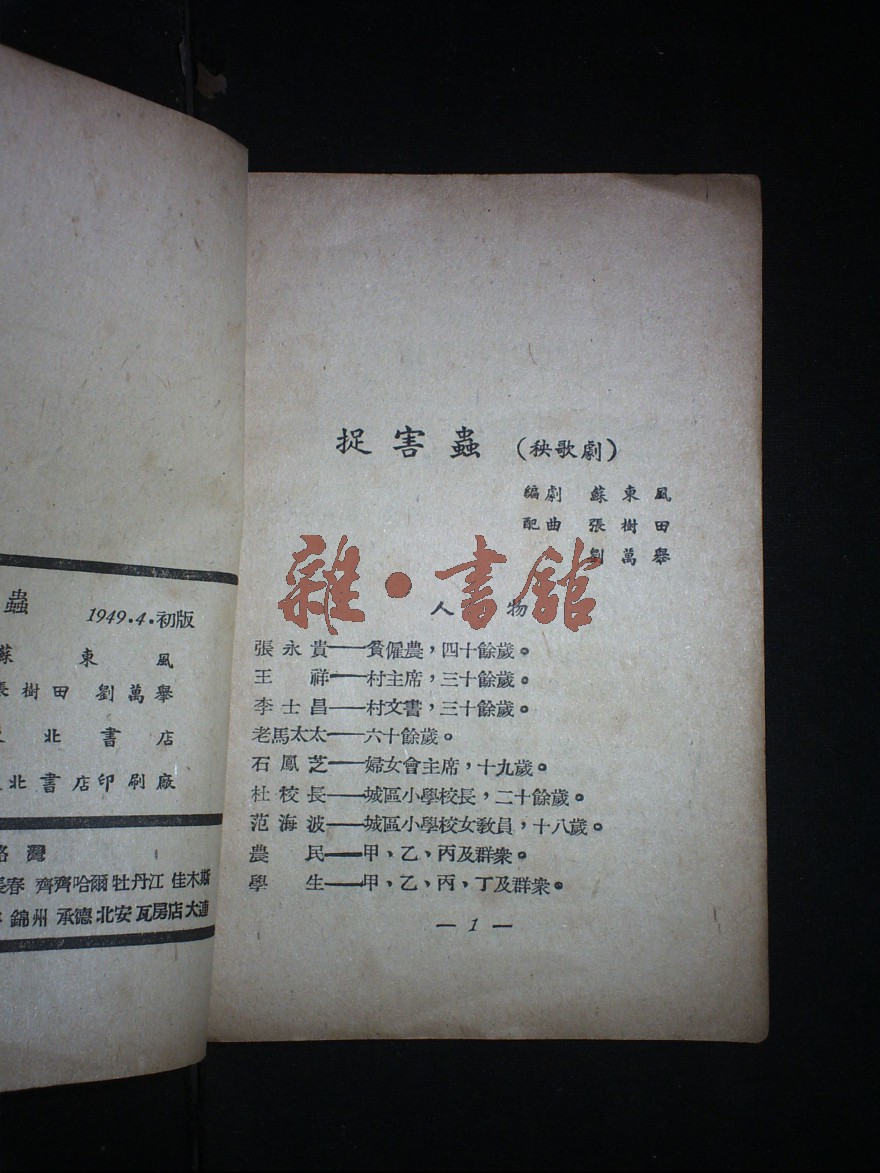 蟲
1949·4·初版
蘇東風
張樹田 劉萬舉
北書店
北書店印刷廠
灣
長春 齊齊哈爾 牡丹江 佳木斯
錦州 承德 北安 瓦房店 大連
捉害蟲（秧歌劇）
編劇 蘇東風
配曲 張樹田
劉萬舉
雜·書館
人物
張永貴——貧僱農，四十餘歲。
王祥——村主席，三十餘歲。
李士昌——村文書，三十餘歲。
老馬太太——六十餘歲。
石鳳芝——婦女會主席，十九歲。
杜校長——城區小學校長，二十餘歲。
范海波——城區小學校女教員，十八歲。
農民——甲、乙、丙及群衆。
學生——甲、乙、丙、丁及群衆。
— 1 —